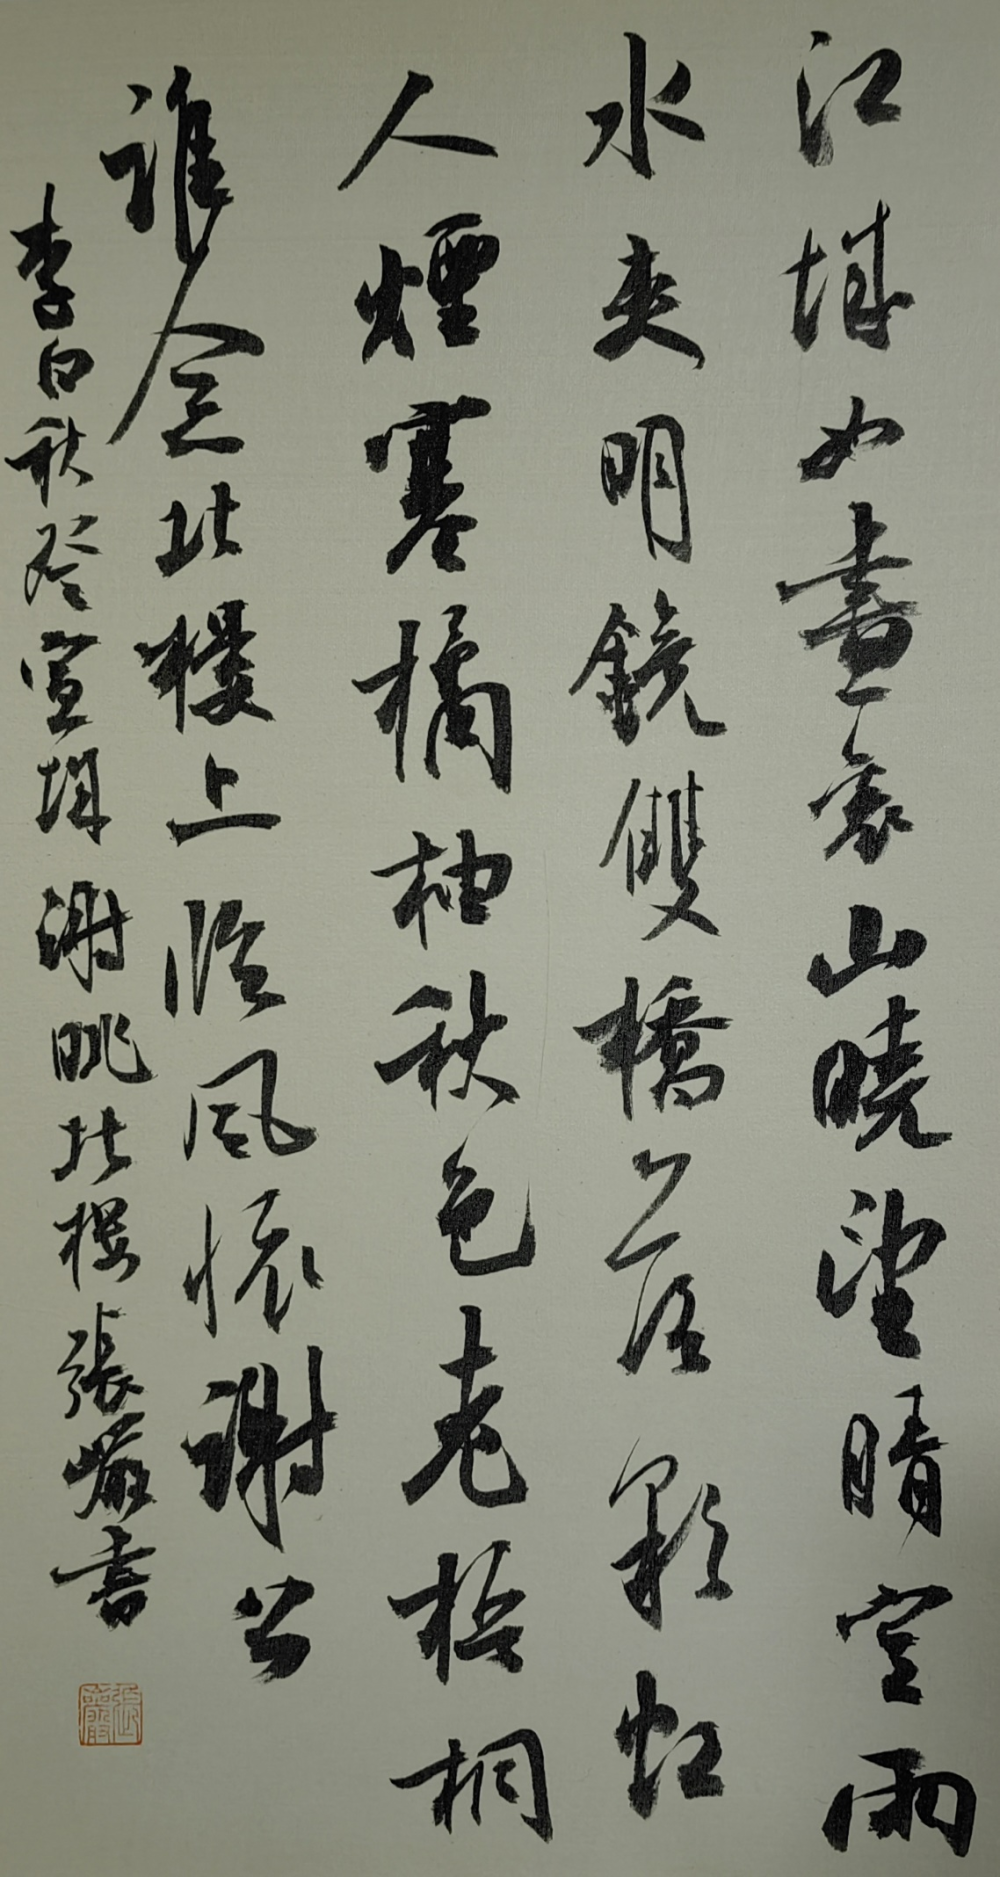 江城如畫裏山曉望晴空兩
水夾明鏡雙橋落彩虹
人煙寒橘柚秋色老梧桐
誰念北樓上臨風懷謝公
李白秋登宣城謝朓北樓 張嚴書
張嚴